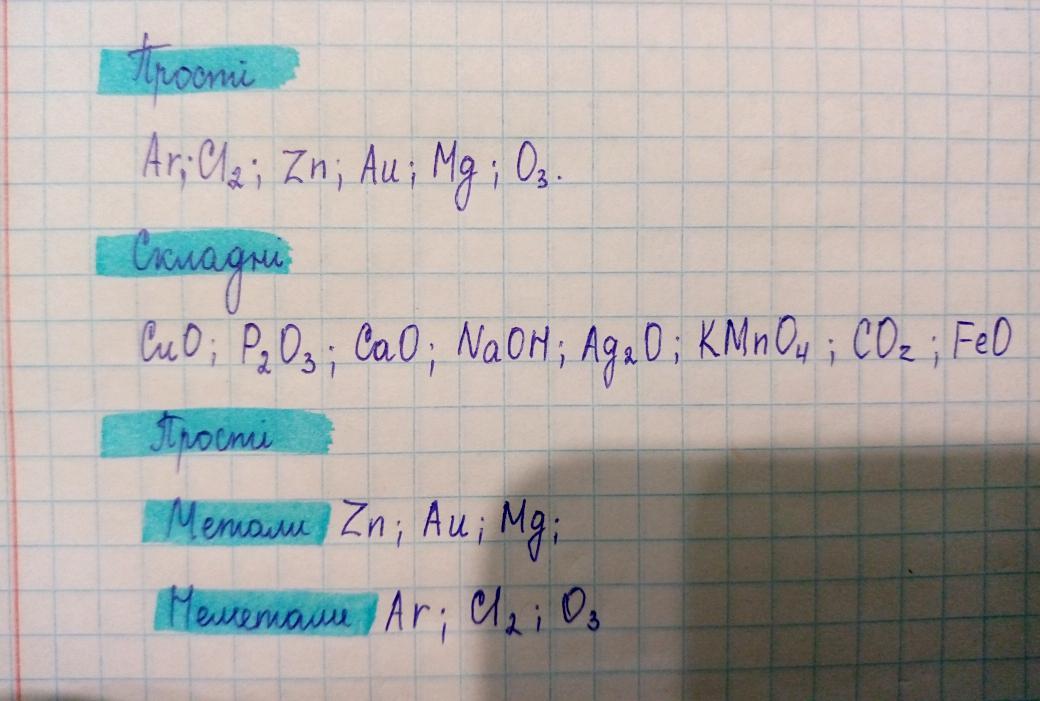 Прості
Ar; Cl₂; Zn; Au; Mg; O₃.
Складні
CuO; P₂O₃; CaO; NaOH; Ag₂O; KMnO₄; CO₂; FeO
Прості
Метали Zn; Au; Mg;
Неметали Ar; Cl₂; O₃